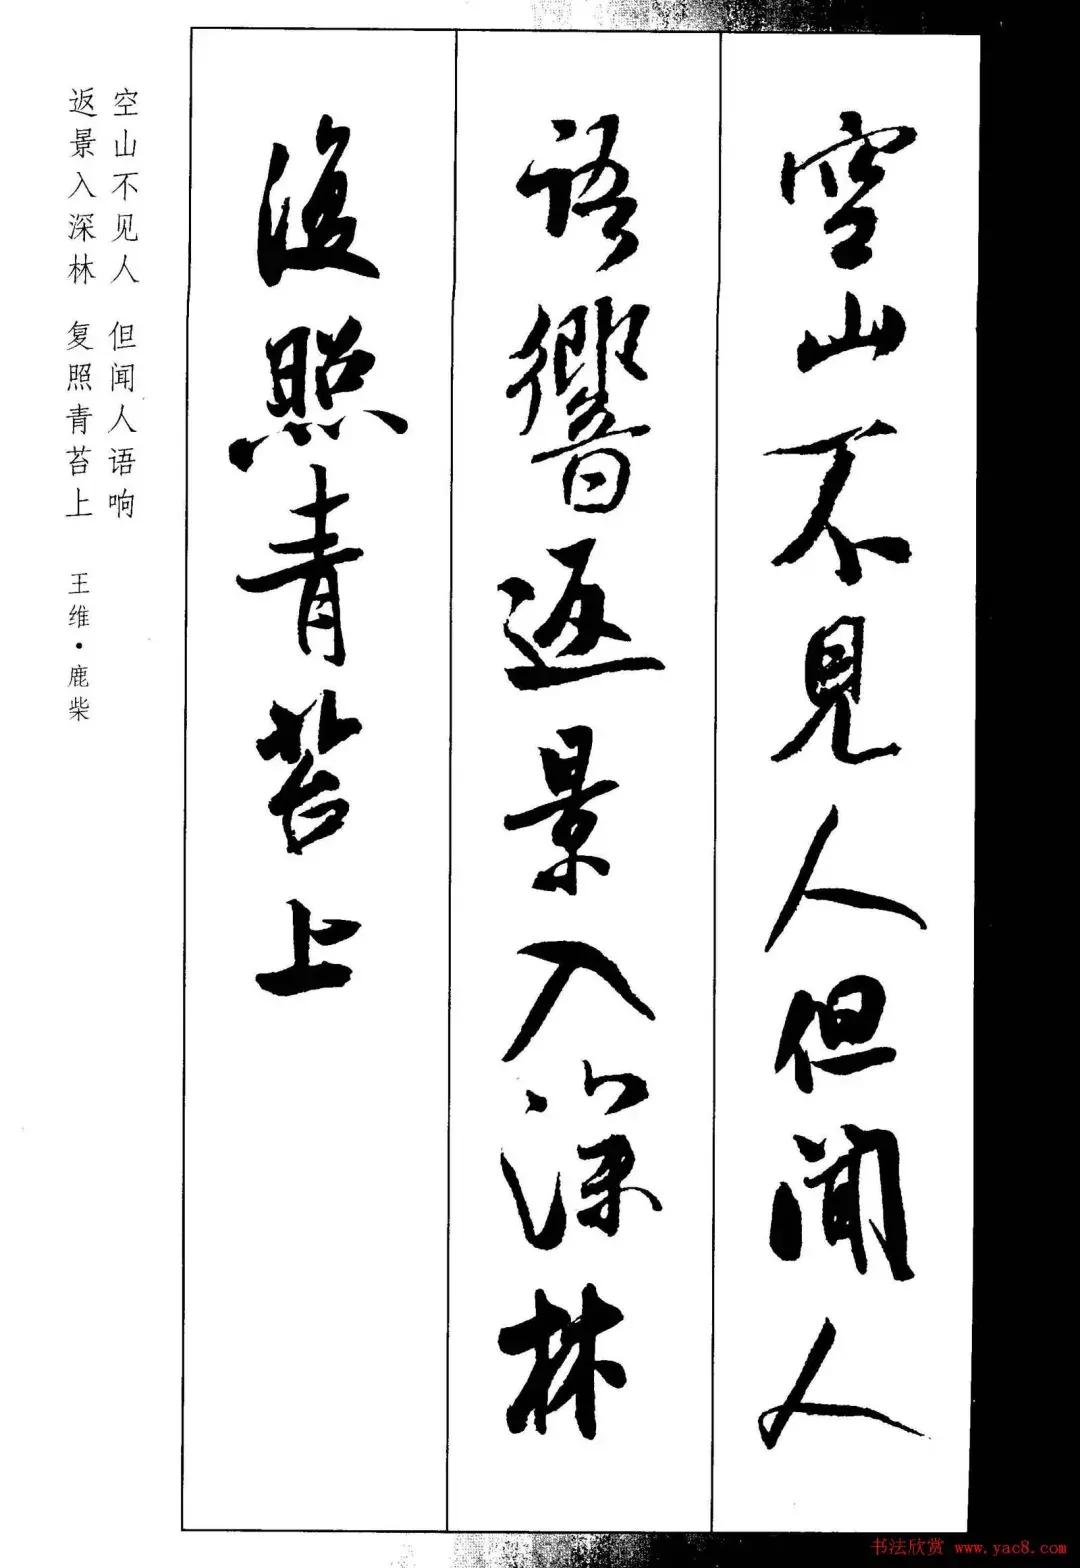 空山不見人但聞人
語響返景入深林
復照青苔上
空山不见人 但闻人语响
返景入深林 复照青苔上 王维·鹿柴
书法欣赏 www.yac8.com